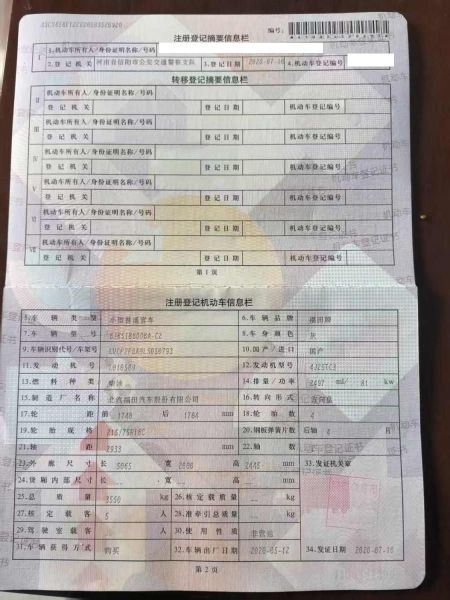 注册登记摘要信息栏
编号:
I 1.机动车所有人/身份证明名称/号码
2.登记机关 河南省信阳市公安交通警察支队 3.登记日期 2020-07-16 4.机动车登记编号
转移登记摘要信息栏
II 机动车所有人/身份证明名称/号码
登记机关 登记日期 机动车登记编号
III 机动车所有人/身份证明名称/号码
登记机关 登记日期 机动车登记编号
IV 机动车所有人/身份证明名称/号码
登记机关 登记日期 机动车登记编号
V 机动车所有人/身份证明名称/号码
登记机关 登记日期 机动车登记编号
VI 机动车所有人/身份证明名称/号码
登记机关 登记日期 机动车登记编号
VII 机动车所有人/身份证明名称/号码
登记机关 登记日期 机动车登记编号
第1页
注册登记机动车信息栏
5.车辆类型 小型普通客车 6.车辆品牌 福田牌
7.车辆型号 8.车身颜色 灰
9.车辆识别代号/车架号 10.国产/进口 国产
11.发动机号 12.发动机型号
13.燃料种类 柴油 14.排量/功率 2497 ml/ 81 kw
15.制造厂名称 北汽福田汽车股份有限公司 16.转向形式 方向盘
17.轮距 前 1740 后 1704 mm 18.轮胎数 4
19.轮胎规格 215/75R16C 20.钢板弹簧片数 后轴 4 片
21.轴距 2933 mm 22.轴数 2
23.外廓尺寸 长 5065 宽 2000 高 2445 mm 33.发证机关章
24.货厢内部尺寸 长 -- 宽 -- 高 -- mm
25.总质量 3550 kg 26.核定载质量 -- kg
27.核定载客 5 人 28.准牵引总质量 -- kg
29.驾驶室载客 -- 人 30.使用性质 非营运
31.车辆获得方式 购买 32.车辆出厂日期 2020-05-12 34.发证日期 2020-07-16
第2页